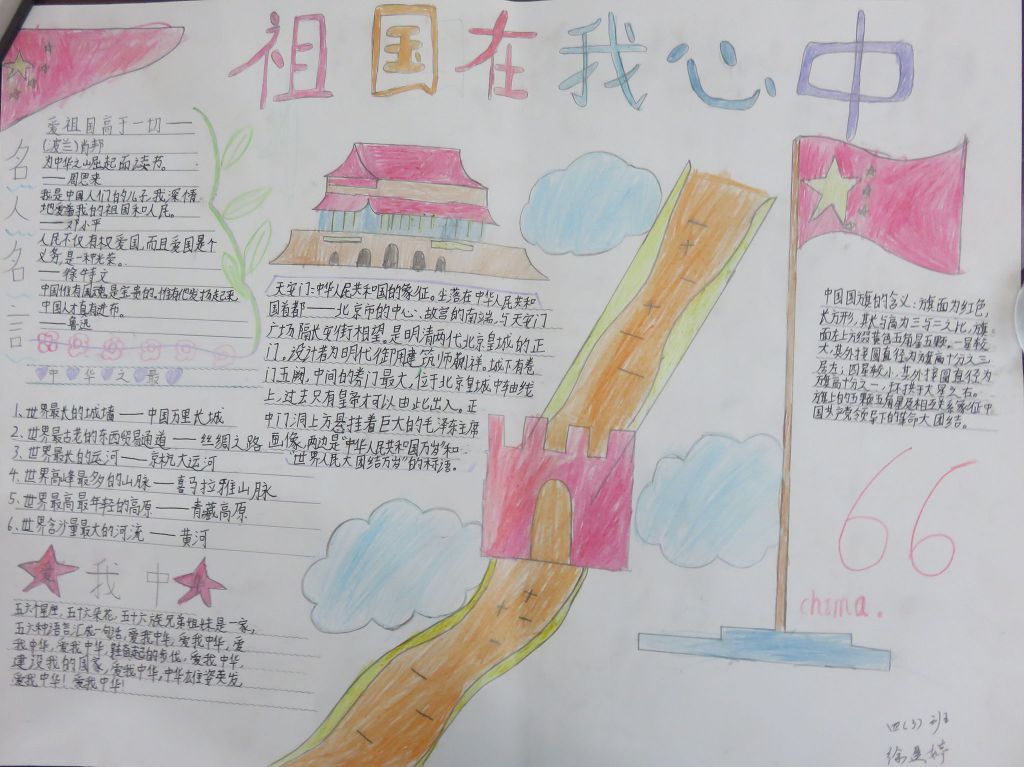 祖国在我心中
名人名言
爱祖国高于一切——
(波兰)肖邦
为中华之崛起而读书。
——周恩来
我是中国人们的儿子,我深情
地爱着我的祖国和人民。
——邓小平
人民不仅有权爱国,而且爱国是个
义务,是一种光荣。
——徐特立
中国人才真有进步。
——鲁迅
中华之最
1、世界最长的城墙——中国万里长城
2、世界最古老的东西贸易通道——丝绸之路
3、世界最长的运河——京杭大运河
4、世界高峰最多的山脉——喜马拉雅山脉
5、世界最高最年轻的高原——青藏高原
6、世界含沙量最大的河流——黄河
爱我中华
五六个星座,五十六朵花,五十六族兄弟姐妹是一家,
五六种语言汇成一句话,爱我中华,爱我中华,爱
我中华,爱我中华,健奋起的步伐,爱我中华,
建设我的国家,爱我中华,中华雄姿英发,
爱我中华!爱我中华!
天安门:中华人民共和国的象征。坐落在中华人民共和
国首都——北京市的中心、故宫的南端,与天安门
广场隔长安街相望。是明清两代北京皇城的正
门。设计者为明代御用建筑师蒯祥。城下有券
门五阙,中间的券门最大,位于北京皇城中轴线
上,过去只有皇帝才可以由此出入。正
中门洞上方悬挂着巨大的毛泽东主席
画像,两边是“中华人民共和国万岁”和
“世界人民大团结万岁”的标语。
中国国旗的含义:旗面为红色,
长方形,其长与高为三与二之比,旗
面左上方缀黄色五角星五颗。一星较
大,其外接圆直径为旗高十分之三,
居左;四星较小,其外接圆直径为
旗高十分之一,环拱于大星之右。
旗上的五颗五角星及相互关系象征中
国共产党领导下的革命大团结。
66
china.
四(3)班